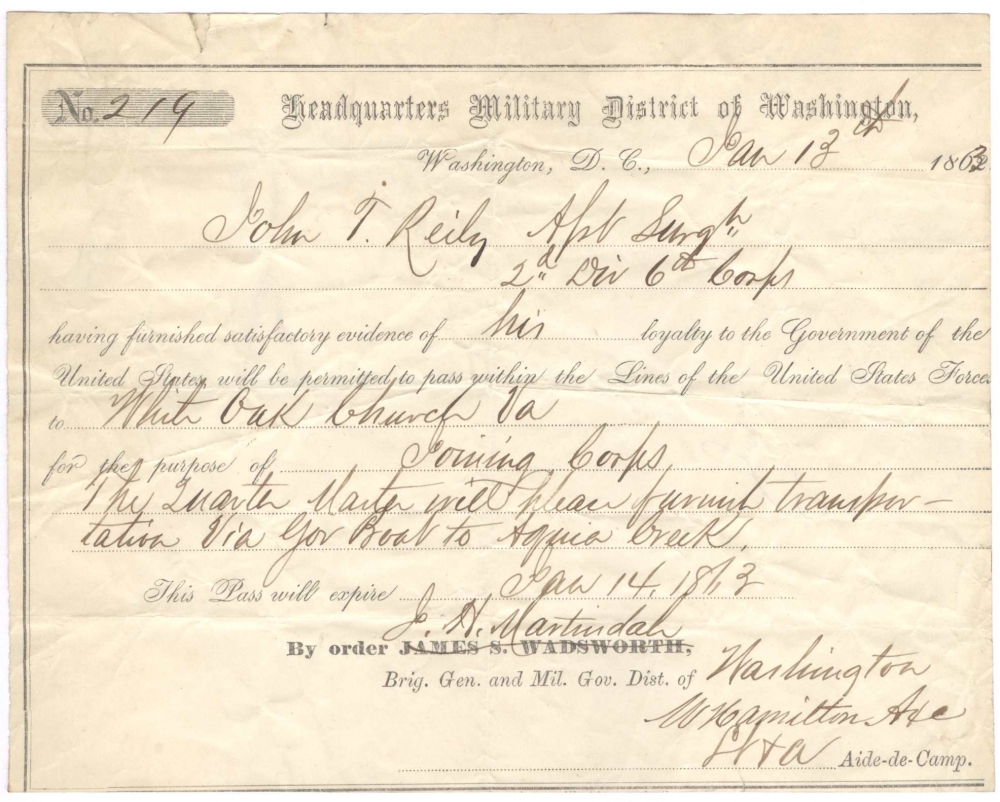 No. 219 Headquarters Military District of Washington,
Washington, D. C., Jan 13th 1863
John T. Reily Asst Surgn
2d Div 6th Corps
having furnished satisfactory evidence of his loyalty to the Government of the
United States, will be permitted to pass within the Lines of the United States Forces
to White Oak Church Va
for the purpose of Joining Corps
The Quarter Master will please furnish transpor-
tation Via Gov Boat to Aquia Creek.
This Pass will expire Jan 14, 1863
J. H. Martindale
By order JAMES S. WADSWORTH,
Brig. Gen. and Mil. Gov. Dist. of Washington
W Hamilton
Aide-de-Camp.